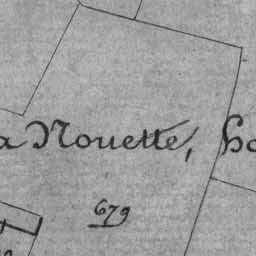 a Nouette, ho
679